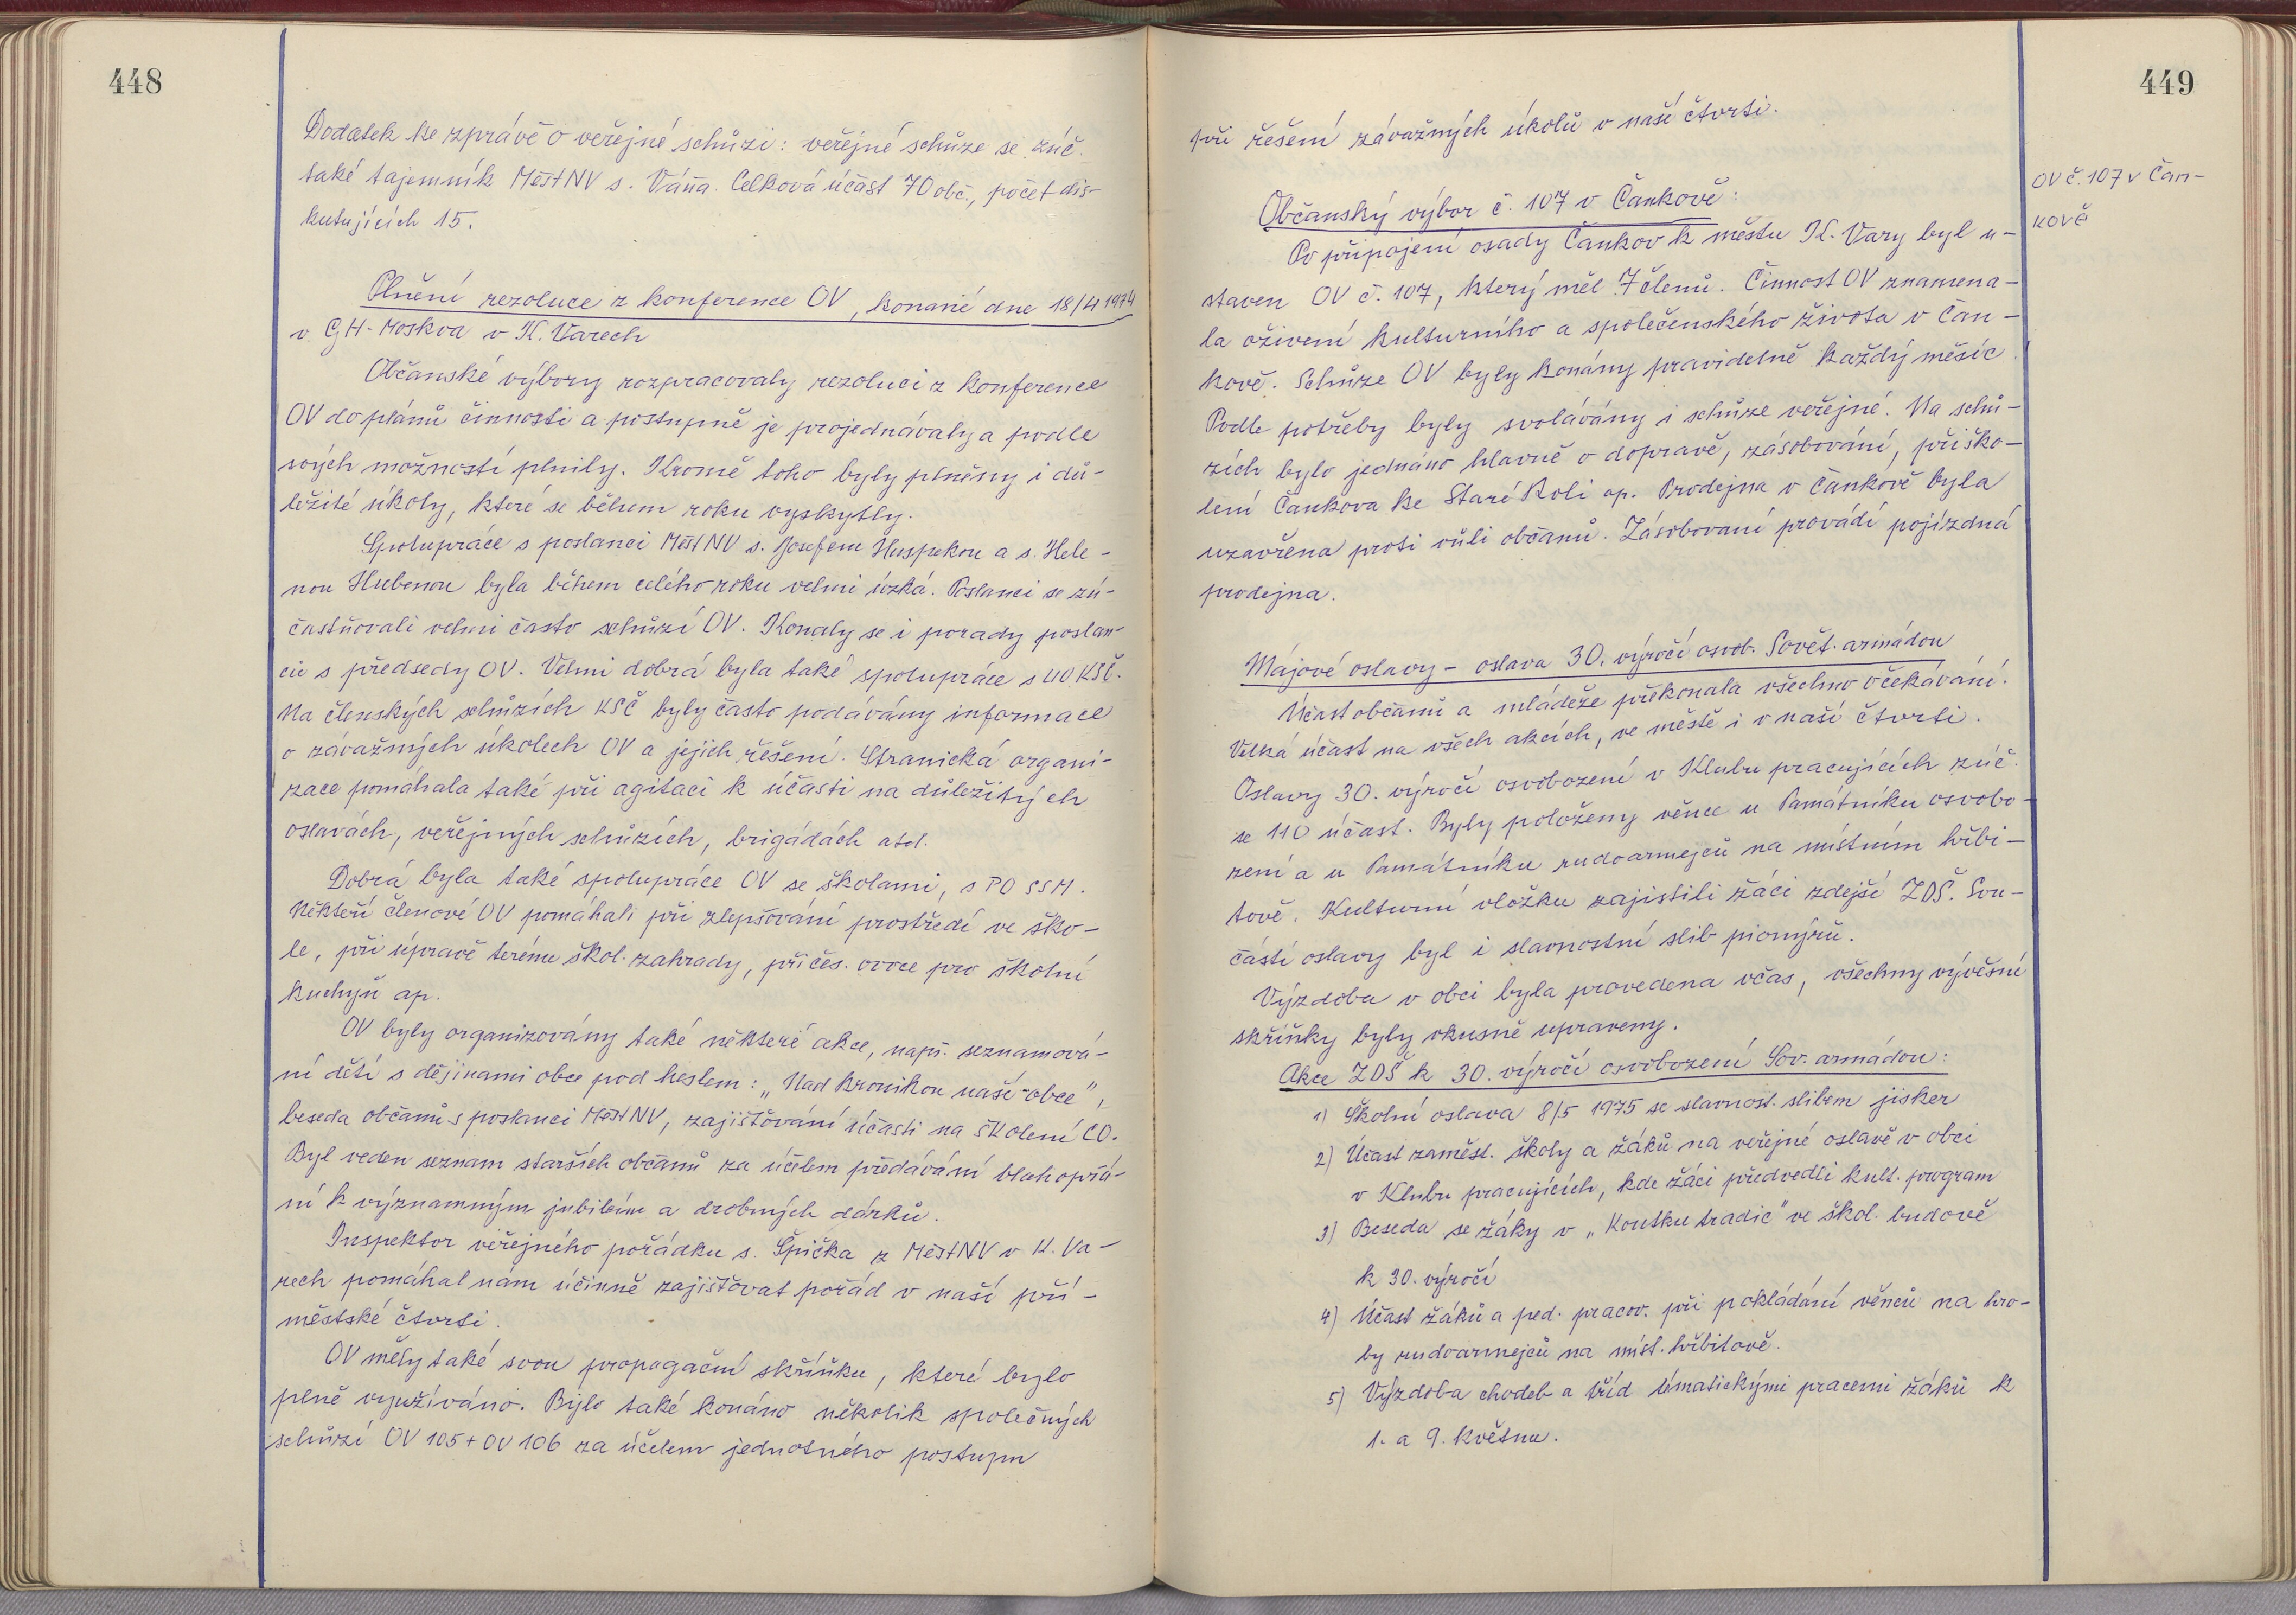 448
Dodatek ke zprávě o veřejné schůzi: veřejné schůze se zúč.
také tajemník MěstNV s. Váňa. Celková účast 70 obč., počet dis-
kutujících 15.
Plnění rezoluce z konference OV, konané dne 18/4 1974
v GH-Moskva v K. Varech
Občanské výbory rozpracovaly rezoluci z konference
OV do plánů činnosti a postupně je projednávaly a podle
svých možností plnily. Kromě toho byly plněny i dů-
ležité úkoly, které se během roku vyskytly.
Spolupráce s poslanci MěstNV s. Josefem Huspekou a s. Hele-
nou Hubenou byla během celého roku velmi úzká. Poslanci se zú-
častňovali velmi často schůzí OV. Konaly se i porady poslan-
ců s předsedy OV. Velmi dobrá byla také spolupráce s UO KSČ.
Na členských schůzích KSČ byly často podávány informace
o závažných úkolech OV a jejich řešení. Stranická organi-
zace pomáhala také při agitaci k účasti na důležitých
oslavách, veřejných schůzích, brigádách atd.
Dobrá byla také spolupráce OV se školami, s PO SSM.
Někteří členové OV pomáhali při zlepšování prostředí ve ško-
le, při úpravě terénu škol. zahrady, při čes. ovoce pro školní
kuchyň ap.
OV byly organizovány také některé akce, např. seznamová-
ní dětí s dějinami obce pod heslem: „Nad kronikou naší obce",
beseda občanů s poslanci MěstNV, zajišťování účasti na školení CO.
Byl veden seznam starších občanů za účelem předávání blahopřá-
ní k významným jubileím a drobných dárků.
Inspektor veřejného pořádku s. Špička z MěstNV v K. Va-
rech pomáhal nám účinně zajišťovat pořád v naší pří-
městské čtvrti.
OV měly také svou propagační skříňku, které bylo
plně využíváno. Bylo také konáno několik společných
schůzí OV 105 + OV 106 za účelem jednotného postupu
449
při řešení závažných úkolů v naší čtvrti.
OV č. 107 v Čan-
kově
Občanský výbor č. 107 v Čankově:
Po připojení osady Čankov k městu K. Vary byl u-
staven OV č. 107, který měl 7 členů. Činnost OV znamena-
la oživení kulturního a společenského života v Čan-
kově. Schůze OV byly konány pravidelně každý měsíc.
Podle potřeby byly svolávány i schůze veřejné. Na schů-
zích bylo jednáno hlavně o dopravě, zásobování, při ško-
lení Čankova ke Staré Roli ap. Prodejna v Čankově byla
uzavřena proti vůli občanů. Zásobovaní provádí pojízdná
prodejna.
Májové oslavy - oslava 30. výročí osvob. Sovět. armádou
Účast občanů a mládeže překonala všechno očekávání.
Velká účast na všech akcích, ve městě i v naší čtvrti.
Oslavy 30. výročí osvobození v Klubu pracujících zúč.
se 110 účast. Byly položeny věnce u Památníku osvobo-
zení a u Památníku rudoarmejců na místním hřbi-
tově. Kulturní vložku zajistili žáci zdejší ZDŠ. Sou-
částí oslavy byl i slavnostní slib pionýrů.
Výzdoba v obci byla provedena včas, všechny vývěsní
skříňky byly vkusně upraveny.
Akce ZDŠ k 30. výročí osvobození Sov. armádou:
1) Školní oslava 8/5 1975 se slavnost. slibem jisker
2) Účast zaměst. školy a žáků na veřejné oslavě v obci
v Klubu pracujících, kde žáci předvedli kult. program
3) Beseda se žáky v „Koutku tradic" ve škol. budově
k 30. výročí
4) Účast žáků a ped. pracov. při pokládání věnců na hro-
by rudoarmejců na míst. hřbitově.
5) Výzdoba chodeb a tříd tématickými pracemi žáků k
1. a 9. květnu.